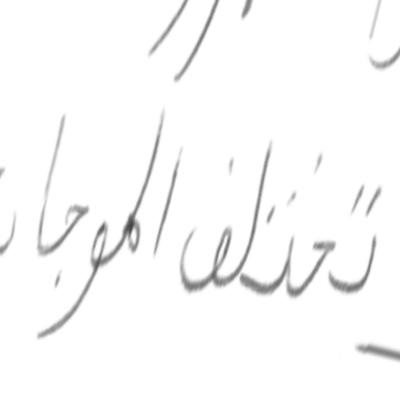 تختلف الموجات